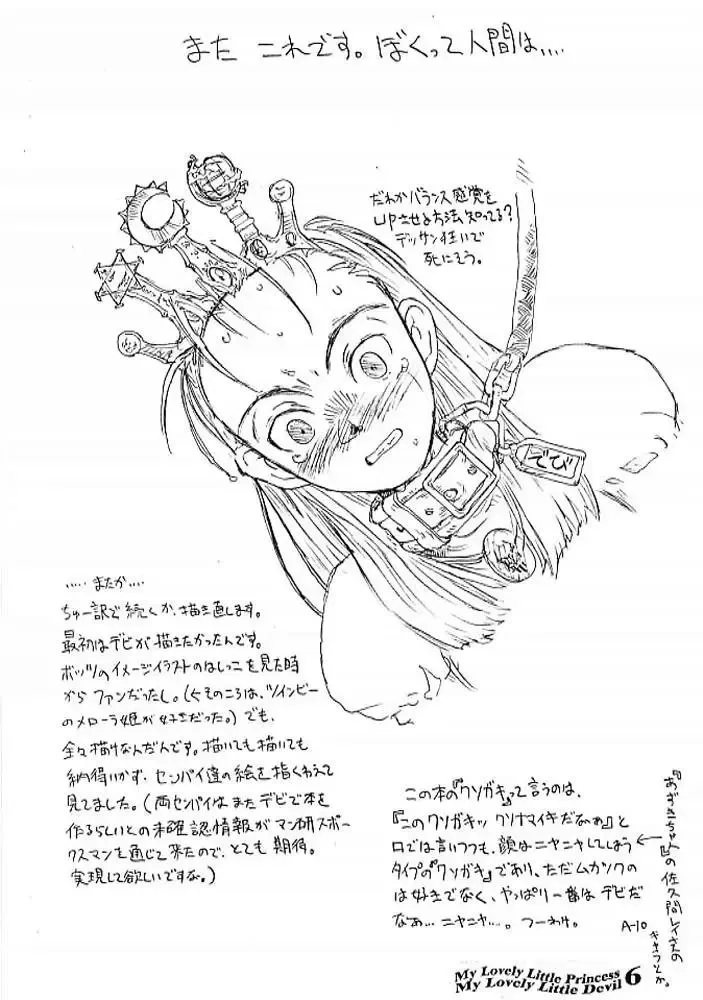 また これです。ぼくって人間は....
だれかバランス感覚を
UPさせる方法知ってる?
デッサン狂いで
死にそう。
でび
..... またか....
ちゅー訳で続くか、描き直します。
最初はデビが描きたかったんです。
ボッツのイメージイラストのはしっこを見た時
からファンだったし。(そのころは、ツインビー
のメローラ姫が好きだった。) でも、
全々描けなんだんです。描いても描いても
納得いかず、センパイ達の絵を指くわえて
見てました。(両センパイはまたデビで本を
作るらしいとの未確認情報がマン研スポー
クスマンを通じて来たので、とても期待。
実現して欲しいですな。)
この本の『クソガキ』って言うのは、
『このクソガキッ クソナマイキだなぁ』と
口では言いつつも、顔はニヤニヤしてしまう
タイプの『クソガキ』であり、ただムカツクの
は好きでなく、やっぱり一番はデビだ
なぁ...ニヤニヤ...。つーわけ。
『あずきちゃん』の佐久間レイさんの
キャラとか。
A-10
My Lovely Little Princess
My Lovely Little Devil 6